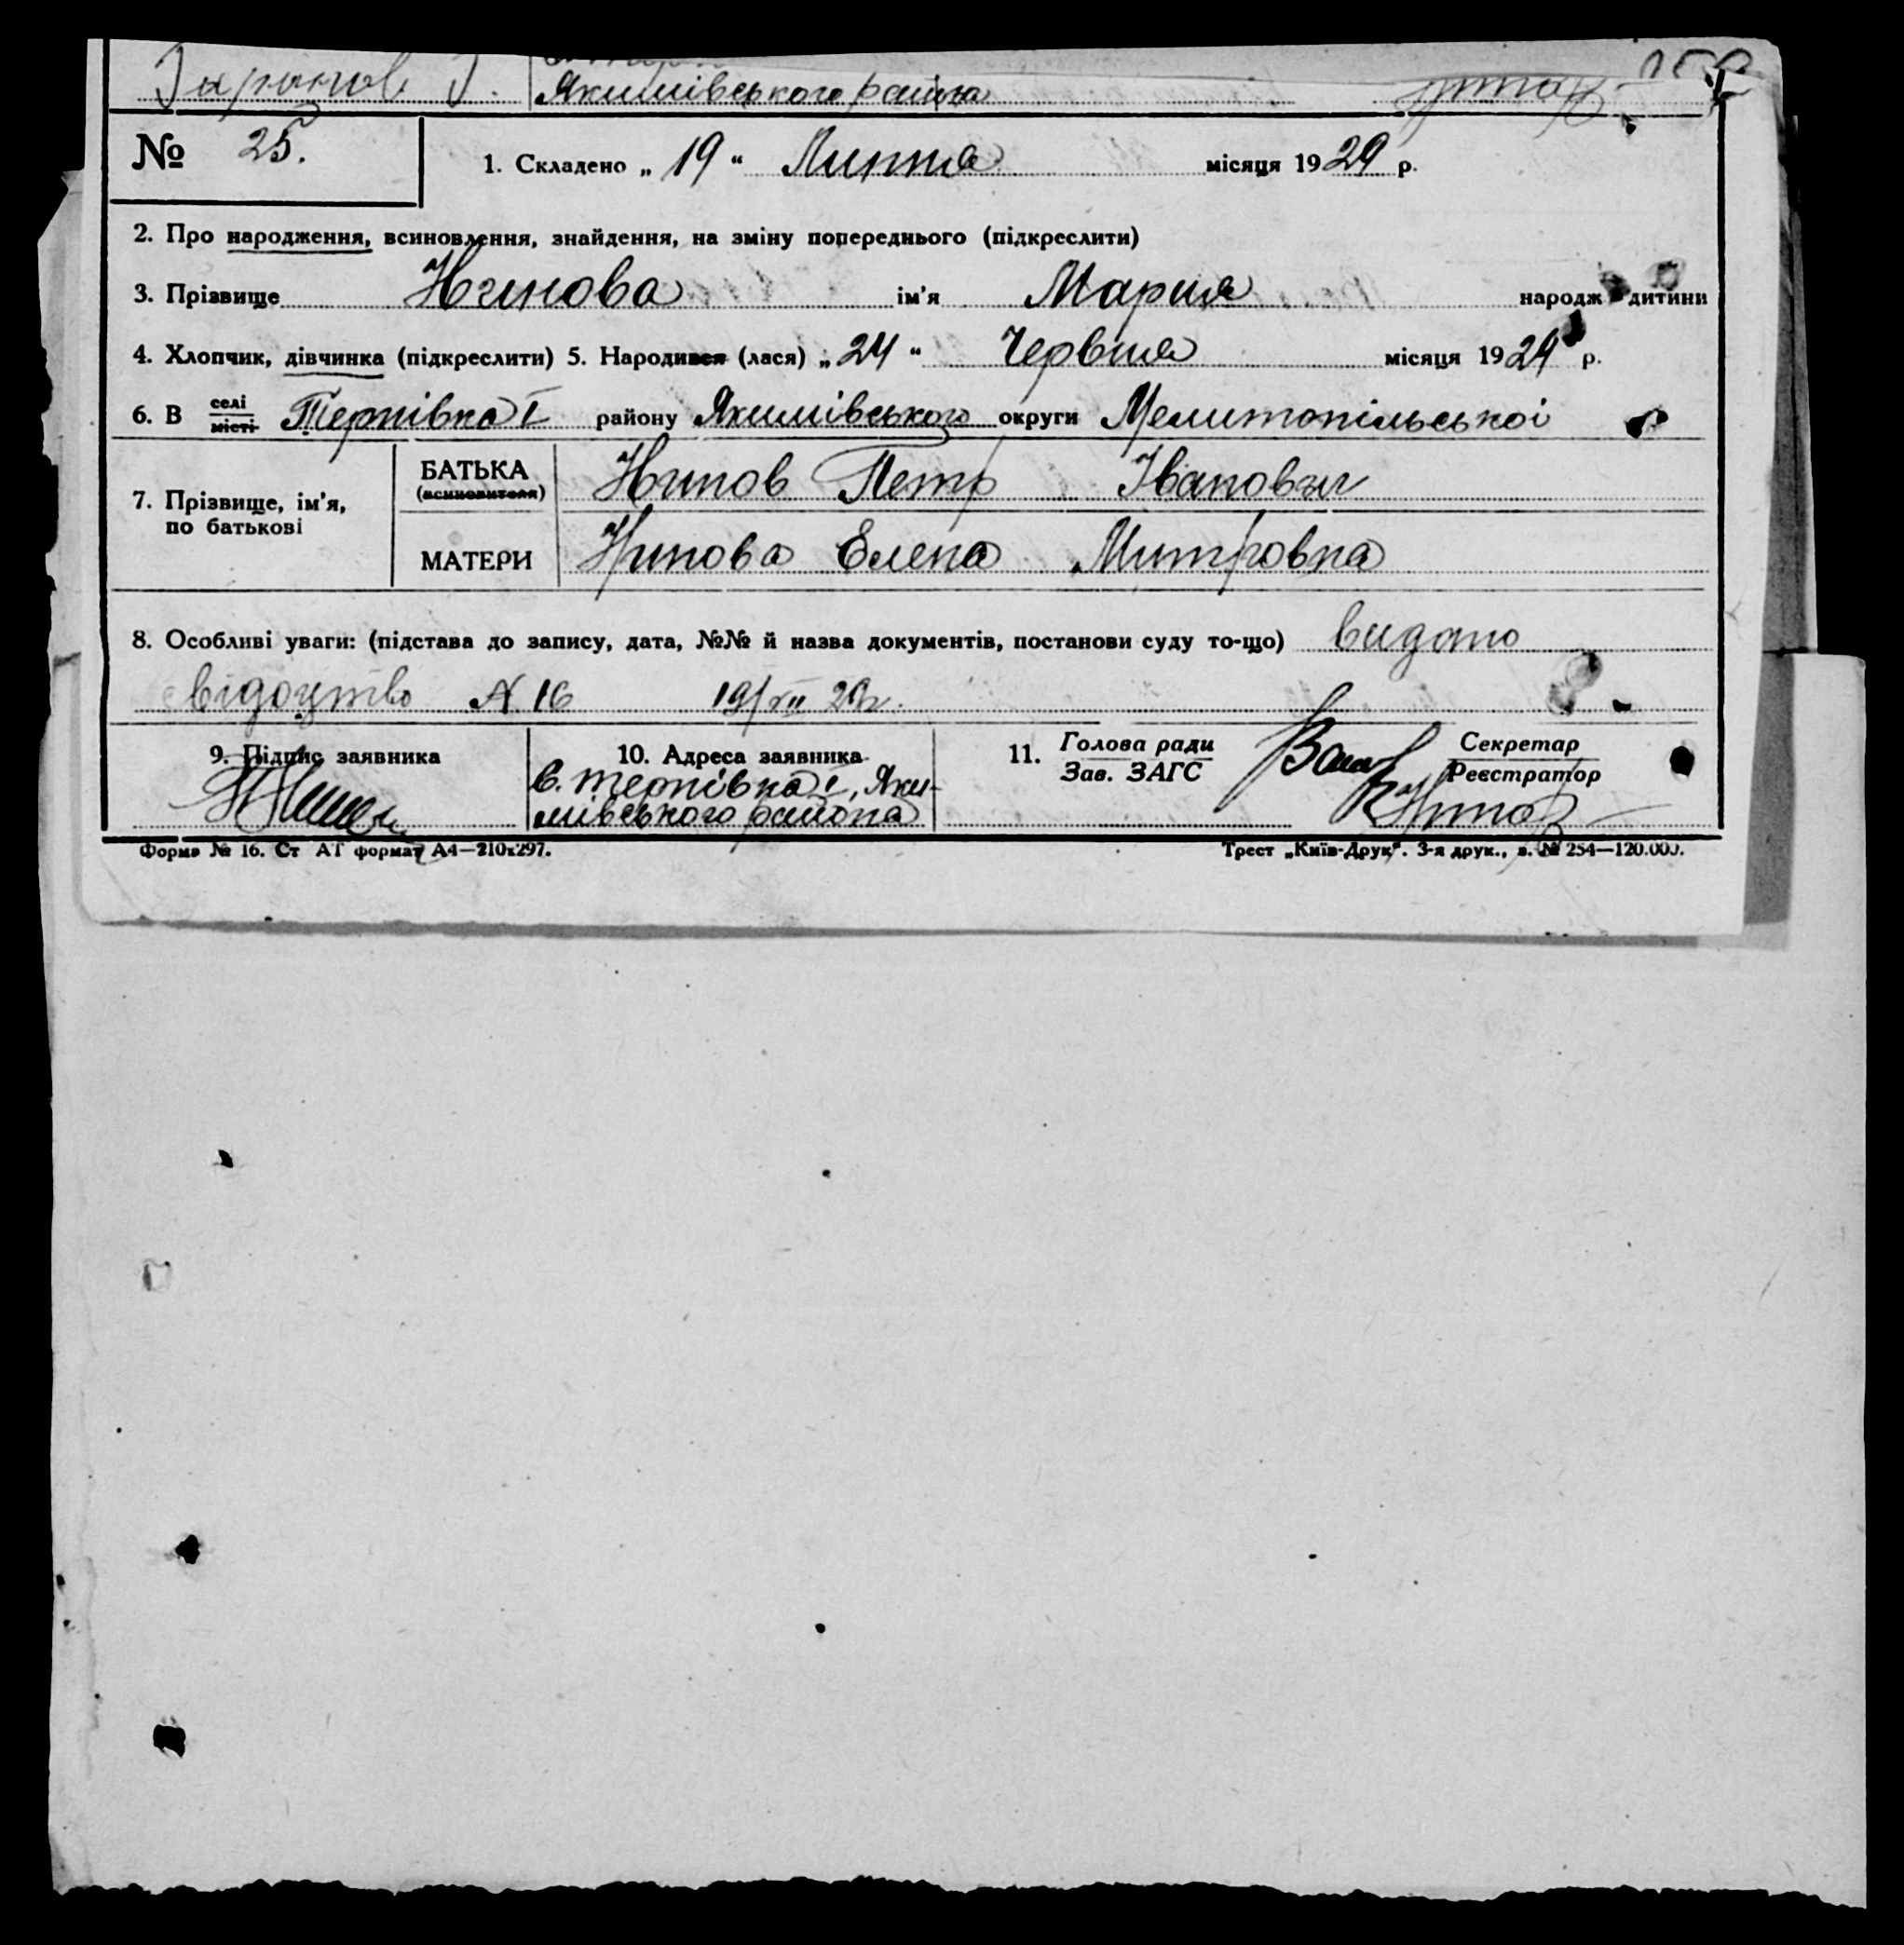 Якимівського района
№ 25. 1. Складено „ 19 “ Липня місяця 1929 р.
2. Про народження, всиновлення, знайдення, на зміну попереднього (підкреслити)
3. Прізвище ім'я Мария народж дитини
4. Хлопчик, дівчинка (підкреслити) 5. Народився (лася) „ 24 “ Червня місяця 1929 р.
6. В селі місті Терпівка I району Якимівського округи Мелитопільської
7. Прізвище, ім'я, по батькові
БАТЬКА (всиновителя) Петр Іванович
МАТЕРИ Елена Митровна
8. Особливі уваги: (підстава до запису, дата, №№ й назва документів, постанови суду то-що) видано
свідоцтво N 16 19/VII 29р.
9. Підпис заявника 10. Адреса заявника 11. Голова ради Зав. ЗАГС Секретар Реєстратор
с. Терпівка I, Яки-
мівського района
Форма № 16. Ст АТ формат А4—210х297. Трест „Київ-Друк“. 3-я друк., з. № 254—120.000.